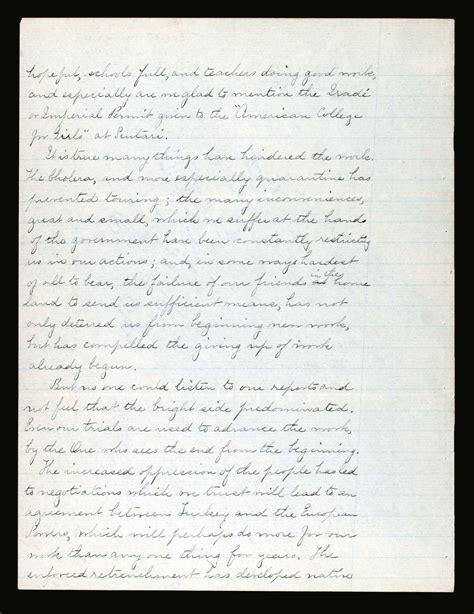 hopeful, schools full, and teachers doing good work,
and especially are we glad to mention the Iradé
or Imperial Permit given to the "American College
for Girls" at Scutari.
It is true many things have hindered the work.
The Cholera, and more especially quarantine has
prevented touring; the many inconveniences,
great and small, which we suffer at the hands
of the government have been constantly restricting
us in our actions; and, in some ways hardest
of all to bear, the failure of our friends in the home
land to send us sufficient means, has not
only deterred us from beginning new work,
but has compelled the giving up of work
already begun.
But no one could listen to our reports and
not feel that the bright side predominated.
Even our trials are used to advance the work,
by the One who sees the end from the beginning.
The increased oppression of the people has led
to negotiations which we trust will lead to an
agreement between Turkey and the European
Powers, which will perhaps do more for our
work than any one thing for years. The
enforced retrenchment has developed native